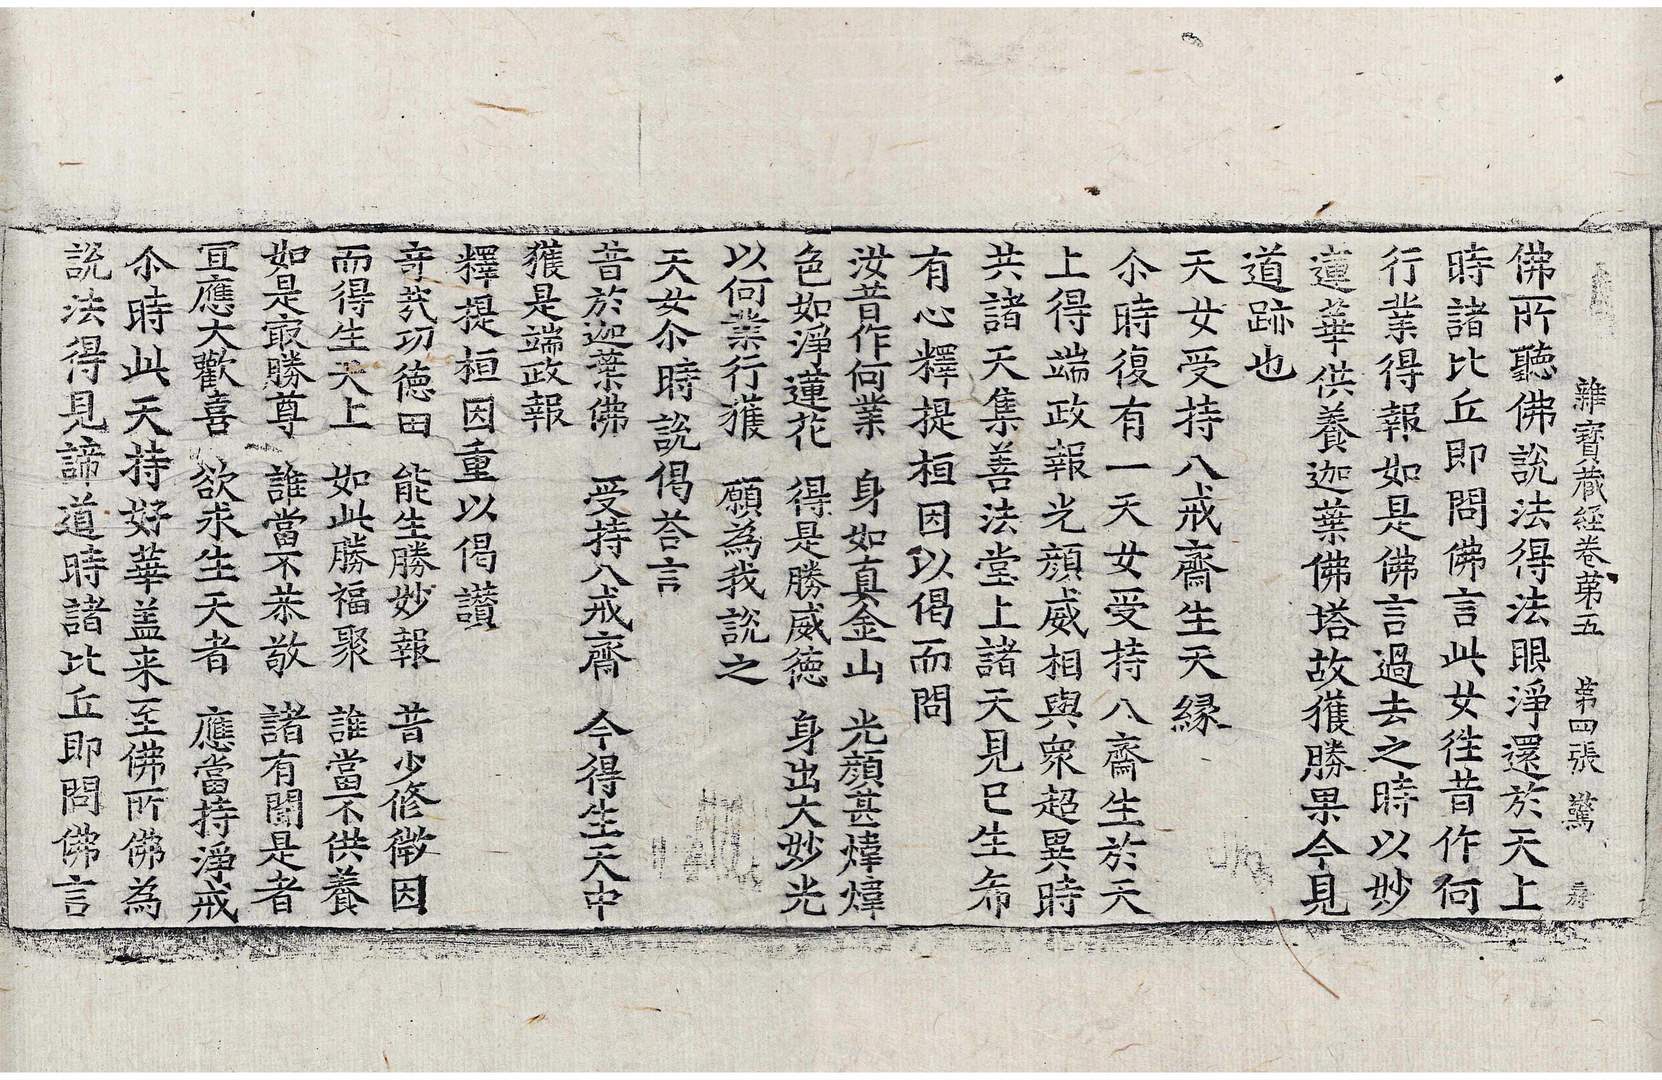 雜寶藏經卷第五 第四張 驚
佛所聽佛說法得法眼淨還於天上
時諸比丘即問佛言此女徃昔作何
行業得報如是佛言過去之時以妙
蓮華供養迦葉佛塔故獲勝果今見
道跡也
天女受持八戒齋生天縁
尒時復有一天女受持八齋生於天
上得端政報光顔威相與衆超異時
共諸天集善法堂上諸天見已生希
有心釋提桓因以偈而問
汝昔作何業 身如真金山 光顔甚煒煒
色如淨蓮花 得是勝威德 身出大妙光
以何業行獲 願為我說之
天女尒時說偈荅言
昔於迦葉佛 受持八戒齋 今得生天中
獲是端政報
釋提桓因重以偈讃
竒㢤功德田 能生勝妙報 昔少修微因
而得生天上 如此勝福聚 誰當不供養
如是㝡勝尊 誰當不恭敬 諸有聞是者
冝應大歡喜 欲求生天者 應當持淨戒
尒時此天持好華盖来至佛所佛為
說法得見諦道時諸比丘即問佛言